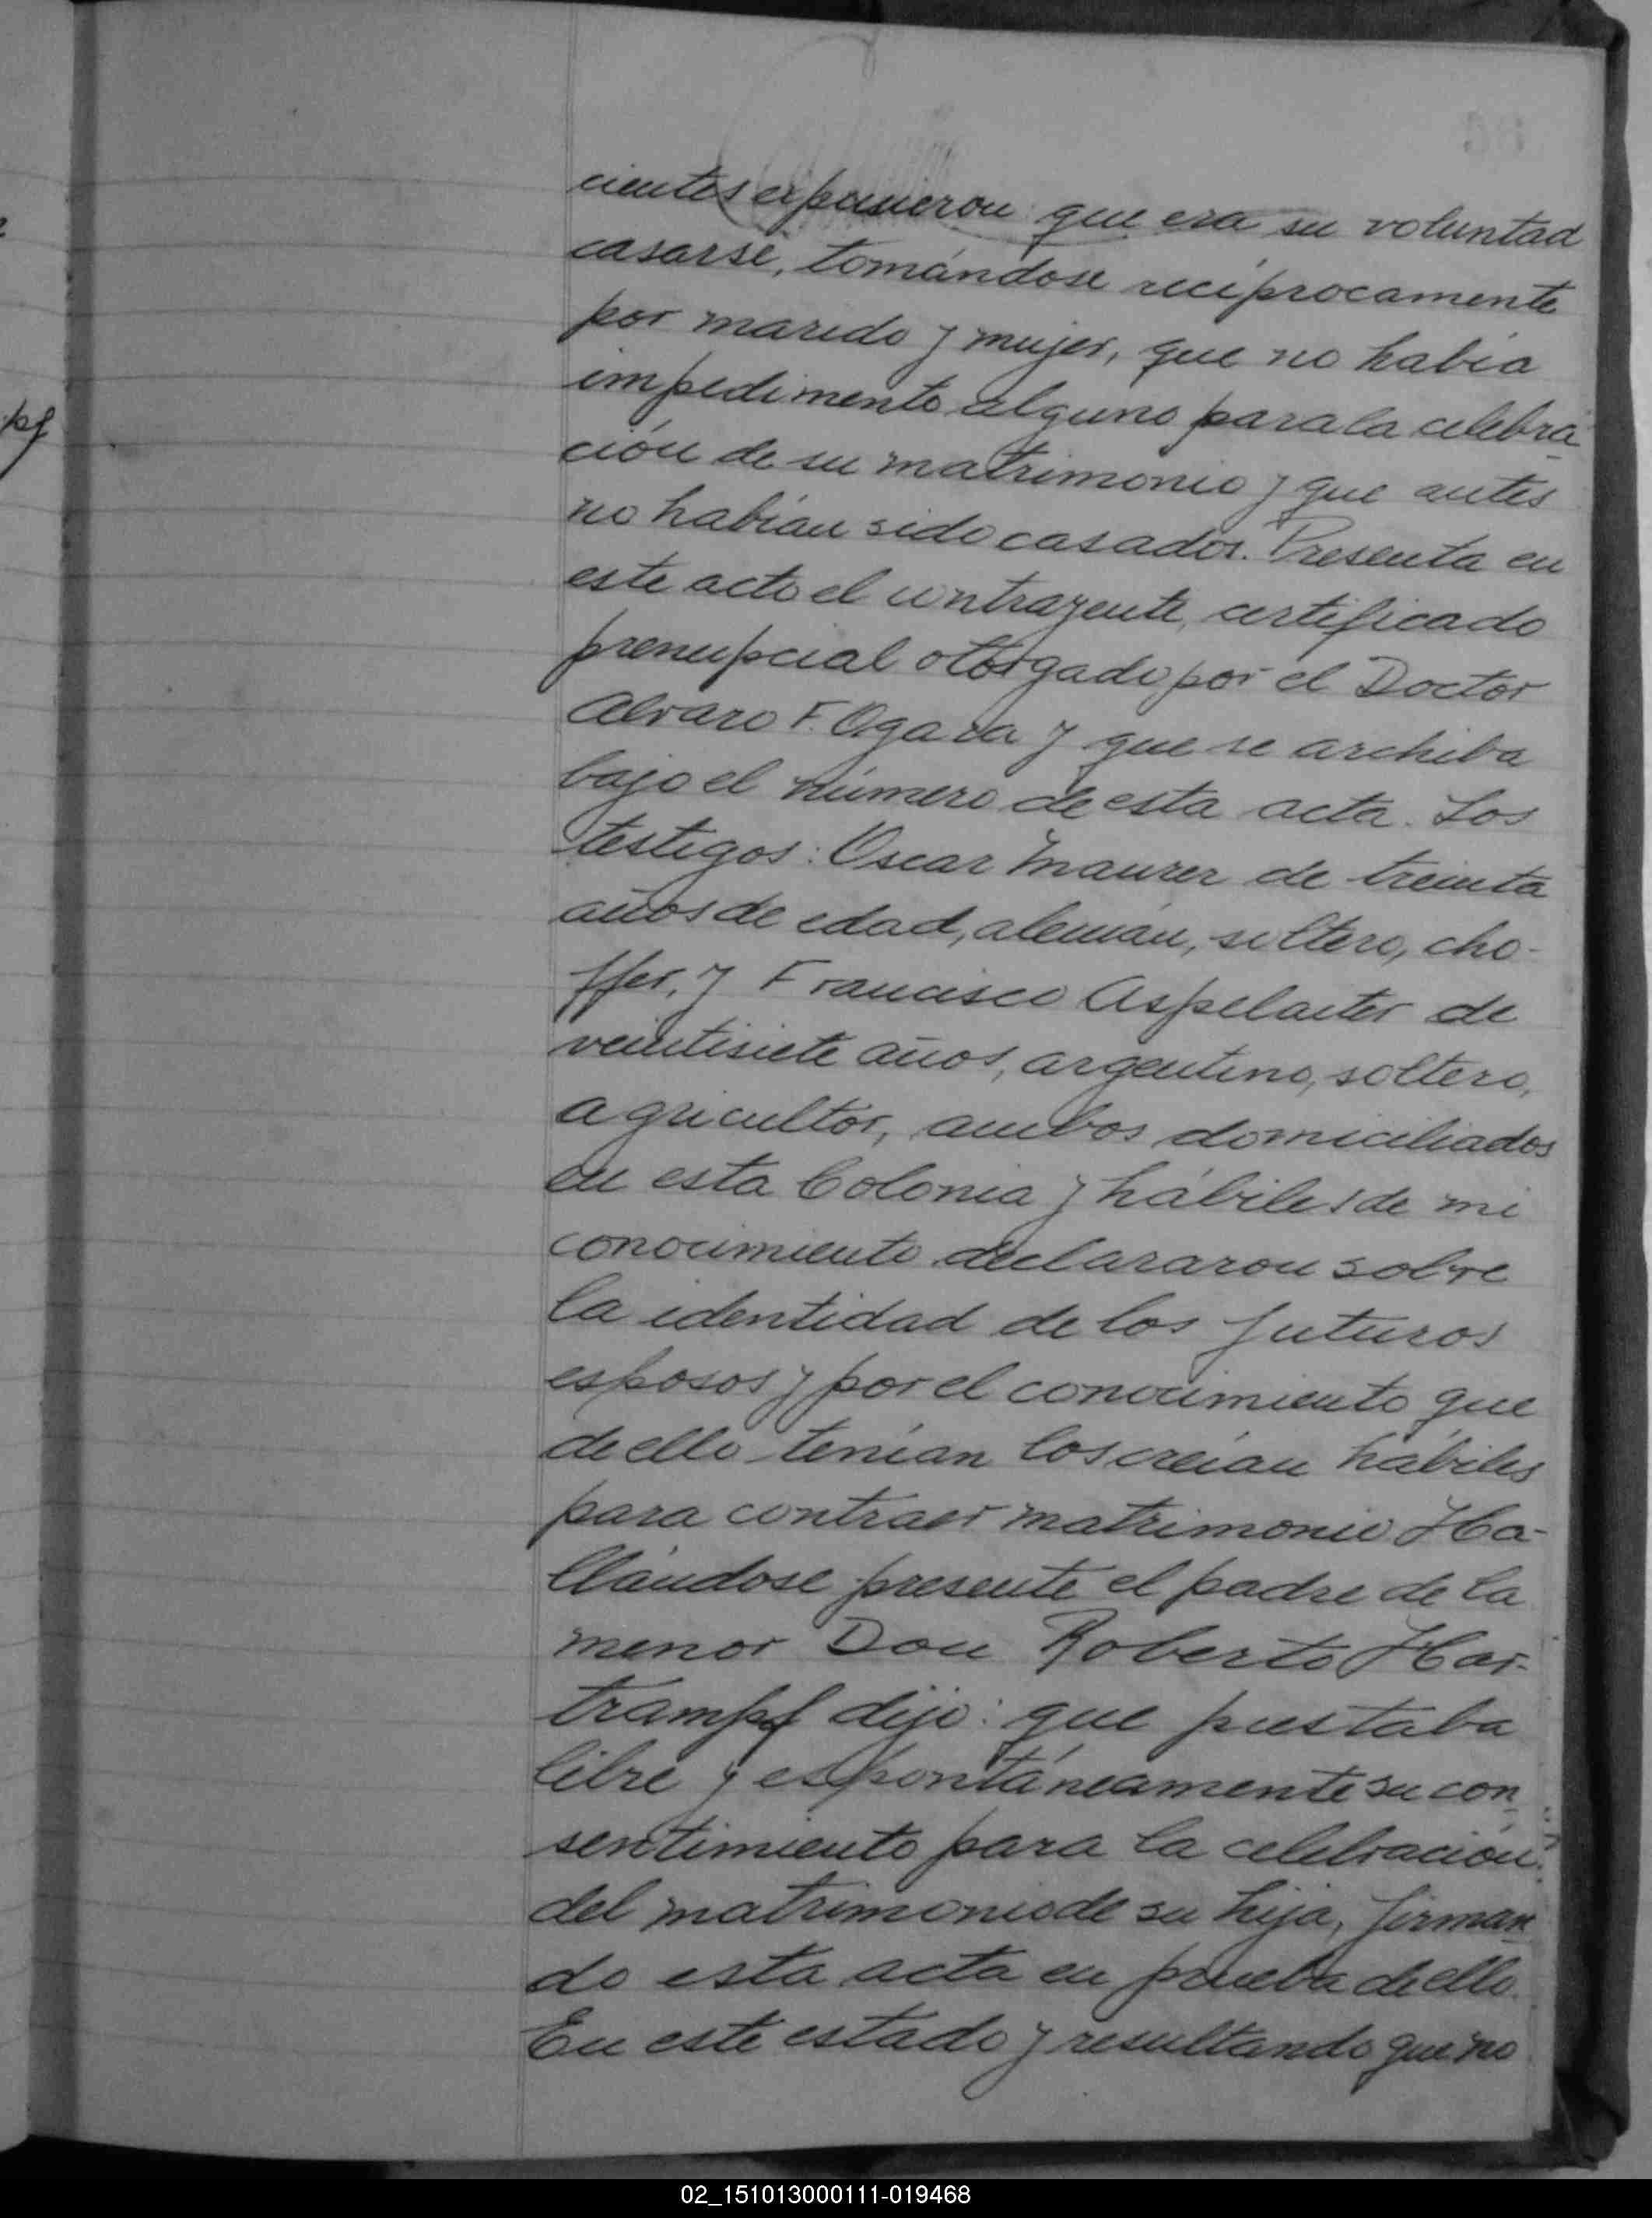 cientes expusieron que era su voluntad
casarse, tomándose recíprocamente
por marido y mujer, que no había
impedimento alguno para la celebra-
ción de su matrimonio y que antes
no habían sido casados. Presenta en
este acto el contrayente, certificado
prenupcial otorgado por el Doctor
Alvaro F. Ogara y que se archiba
bajo el número de esta acta. Los
testigos: Oscar Maurer de treinta
años de edad, alemán, soltero, cho-
ffer, y Francisco Aspelaiter de
veintisiete años, argentino, soltero,
agricultor, ambos domiciliados
en esta Colonia y hábiles de mi
conocimiento declararon sobre
la identidad de los futuros
esposos y por el conocimiento que
de ello tenían los creían hábiles
para contraer matrimonio Ha-
llándose presente el padre de la
menor Don Roberto Har-
trampf dijo: que prestaba
libre y espontáneamente su con-
sentimiento para la celebración
del matrimonio de su hija, firman-
do esta acta en prueba de ello.
En este estado y resultando que no
pf
02_151013000111-019468